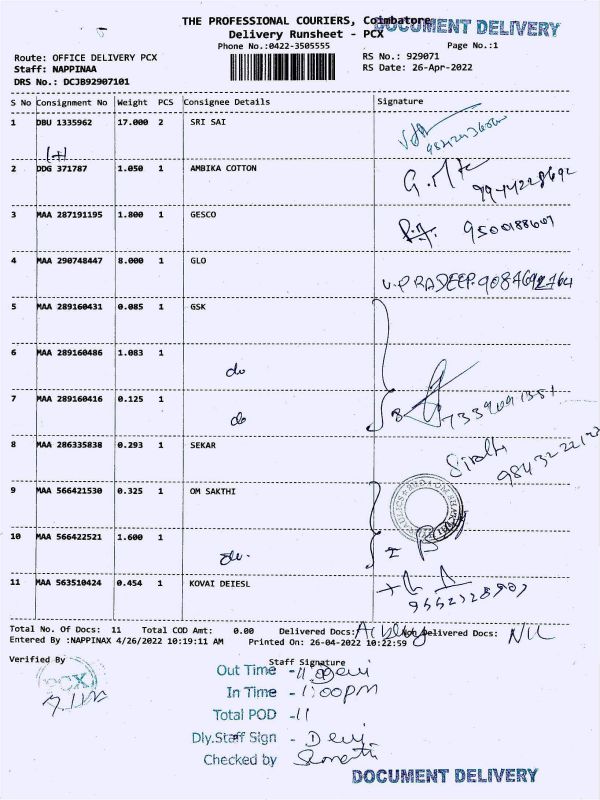 THE PROFESSIONAL COURIERS, Coimbatore
DOCUMENT DELIVERY
Delivery Runsheet - PCX
Phone No.:0422-3505555
Page No.:1
Route: OFFICE DELIVERY PCX
RS No.: 929071
Staff: NAPPINAA
RS Date: 26-Apr-2022
DRS No.: DCJB92907101
S No Consignment No Weight PCS Consignee Details Signature
1 DBU 1335962 17.000 2 SRI SAI
2 DDG 371787 1.050 1 AMBIKA COTTON
3 MAA 287191195 1.800 1 GESCO
9500188607
4 MAA 290748447 8.000 1 GLO
V.PRADEEP.9087692764
5 MAA 289160431 0.085 1 GSK
6 MAA 289160486 1.083 1
do
7 MAA 289160416 0.125 1
do
8 MAA 286335838 0.293 1 SEKAR
9 MAA 566421530 0.325 1 OM SAKTHI
10 MAA 566422521 1.600 1
11 MAA 563510424 0.454 1 KOVAI DEIESL
Total No. Of Docs: 11 Total COD Amt: 0.00 Delivered Docs: Non Delivered Docs: Nil
Entered By :NAPPINAX 4/26/2022 10:19:11 AM Printed On: 26-04-2022 10:22:59
Verified By
Staff Signature
PCX
Out Time -
In Time - 1:00pm
Total POD -11
Dly.Staff Sign - Devi
Checked by
DOCUMENT DELIVERY